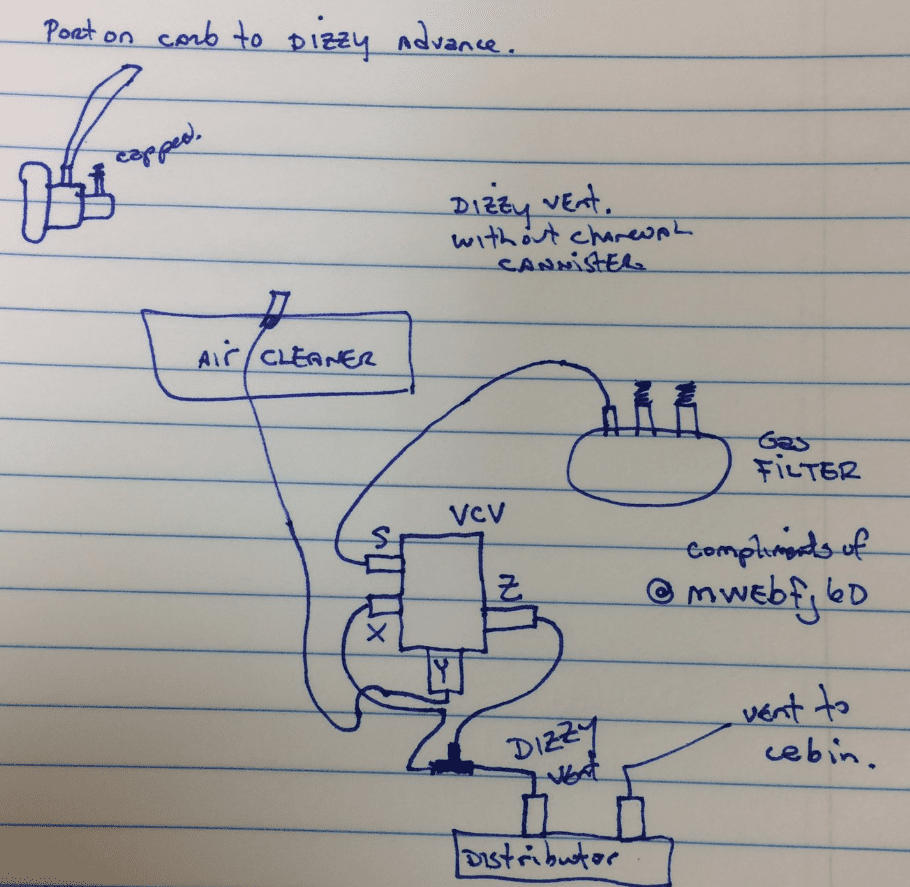 Port on carb to Dizzy Advance.
capped.
Dizzy vent.
without charcoal
cannister.
Air CLEANER
Gas
FILTER
VCV
S
Z
X
Y
compliments of
@ mwebfj60
Dizzy
vent
vent to
cebin.
Distributor